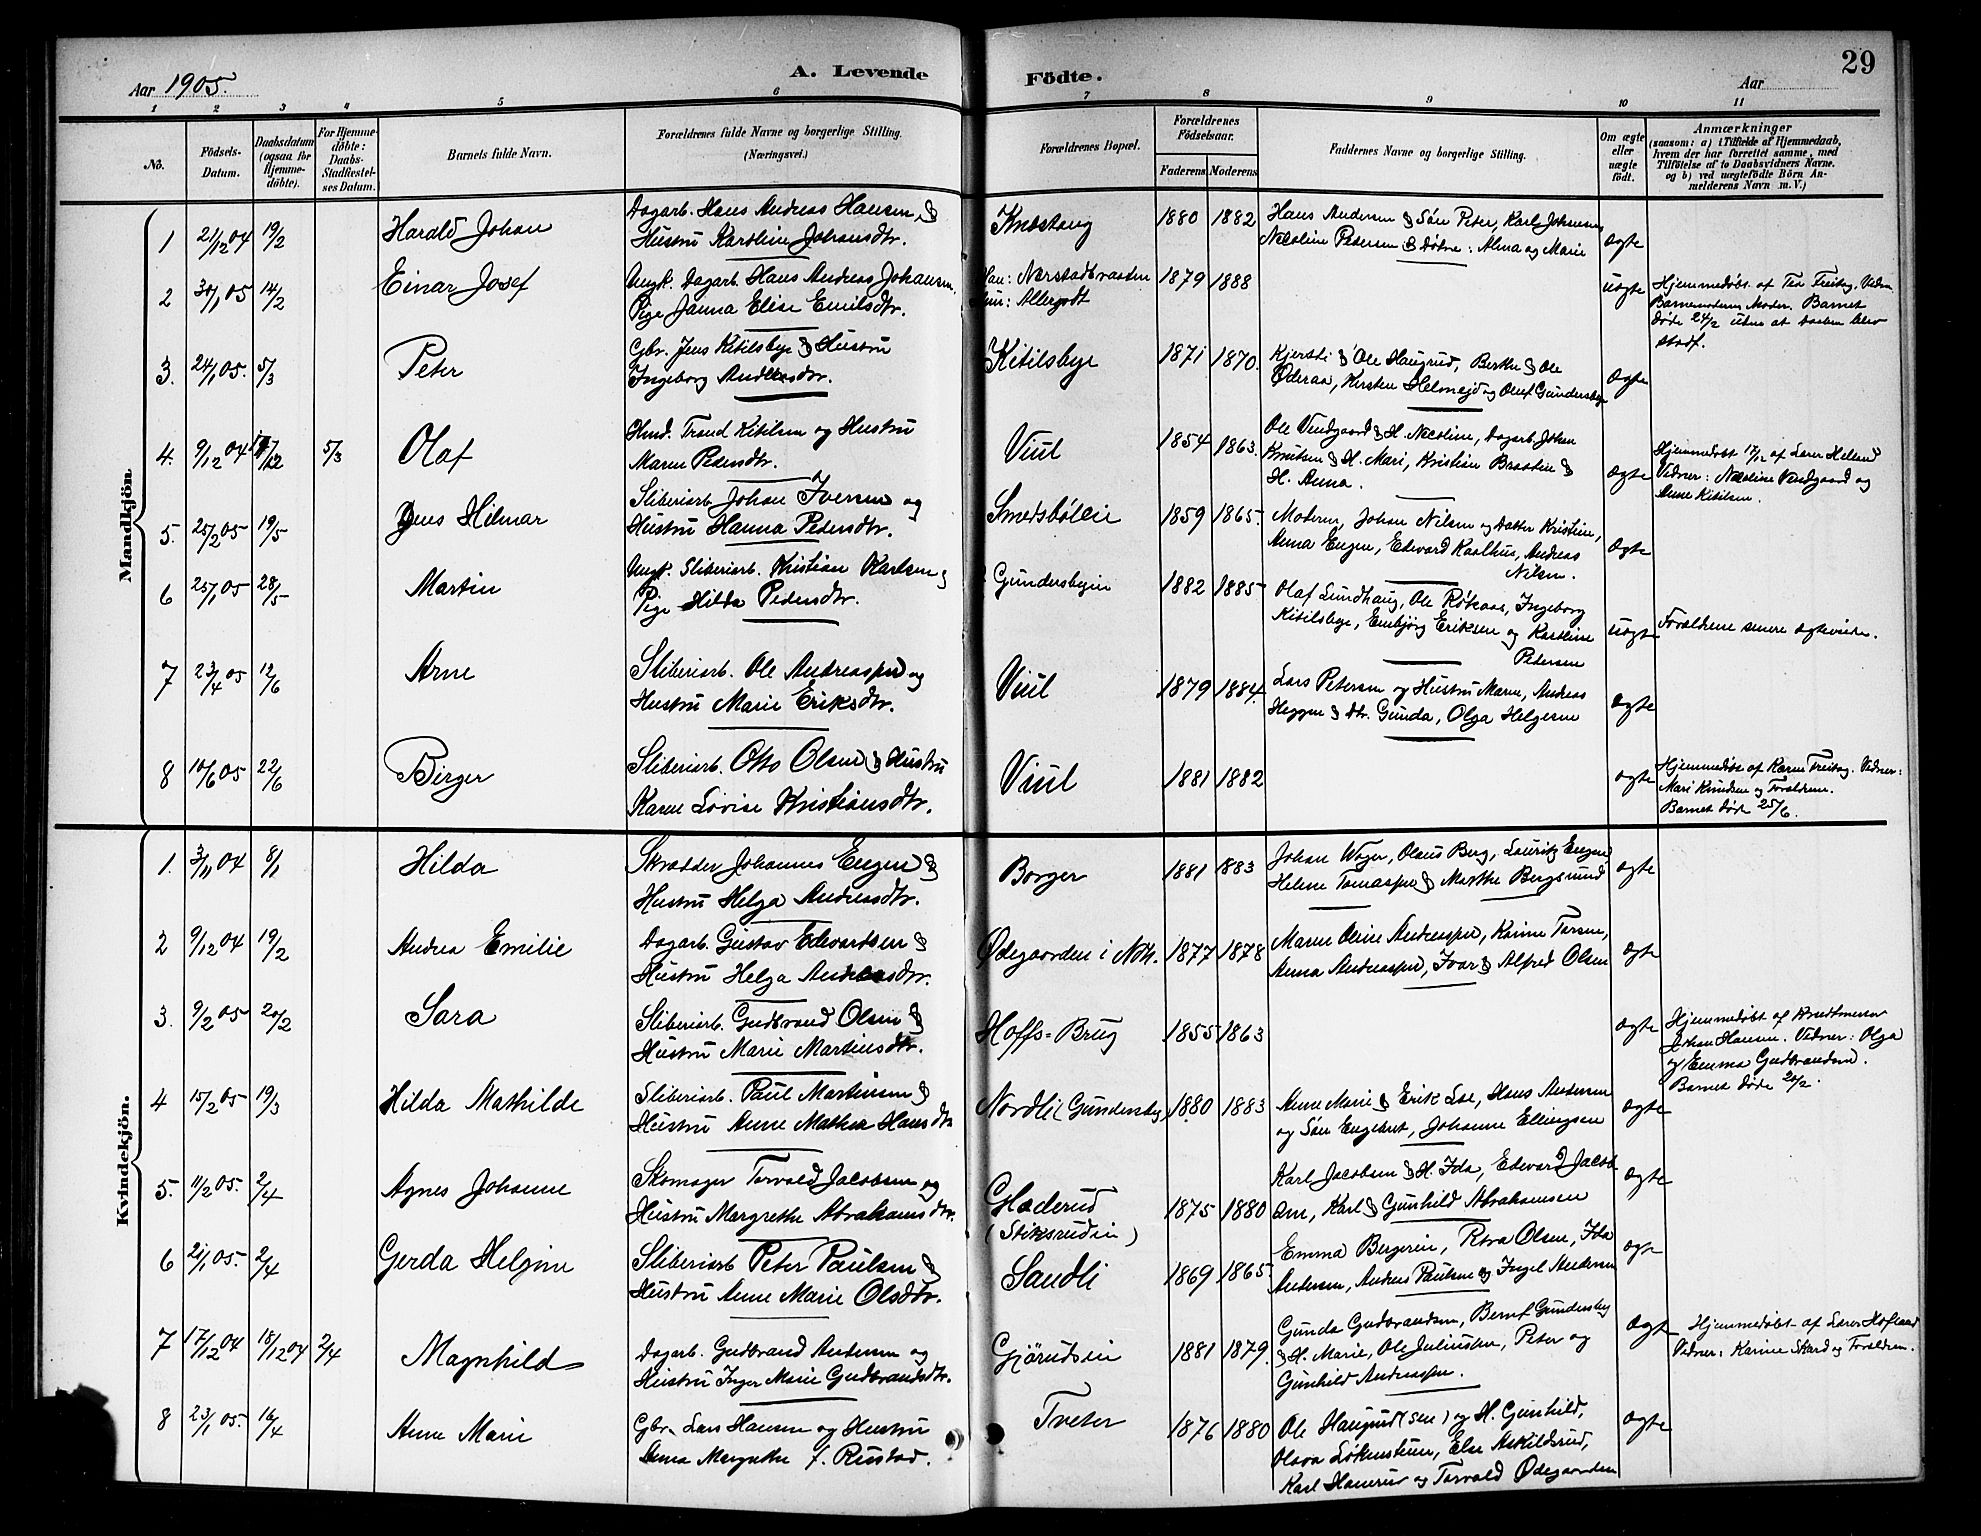 29
Aar 1905.
A. Levende Födte.
Aar
1 2 3 4 5 6 7 8 9 10 11
No.
Födsels-Datum.
Daabsdatum (ogsaa for Hjemmedöbte).
For Hjemmedöbte: Daabs-Stadfæstelses Datum.
Barnets fulde Navn.
Forældrenes fulde Navne og borgerlige Stilling. (Næringsvei.)
Forældrenes Bopæl.
Forældrenes Födselsaar.
Faderens Moderens
Faddernes Navne og borgerlige Stilling.
Om ægte eller uægte födt.
Anmærkninger
(saasom: a) i Tilfælde af Hjemmedaab, hvem der har forrettet samme, med Tilföielse af to Daabsvidners Navne. og b) ved uægtefödte Börn Anmelderens Navn m. V.)
Mandkjön.
1 21/12 04 19/2 Harald Johan
Dagarb. Hans Andreas Hansen &
Hustru Karoline Johansdtr.
Knestang 1880 1882
Hans Andersen & Sön Peter, Karl Johansen
Nicoline Petersen & Døtre: Alma og Marie
ægte
2 30/1 05 14/2 Einar Josef
Ungk. Dagarb. Hans Andreas Johansen,
Pige Janna Elise Emilsdtr.
Han: Nærstadbraaten
Hun: Allergodt
1879 1888
uægte
Hjemmedøbt af Tea Freitag. Vidn.
Barnemoderens Moder. Barnet
døde 24/2 uden at daaben blev
stadf.
3. 24/1 05. 5/3 Peter
Gbr. Jens Kitilsbye & Hustru
Ingeborg Andersdtr.
Kitilsbye 1871 1870.
Kjersti & Ole Haugrud, Berthe & Ole
Oderaa, Kirsten Helmejd og Oluf Gundersbye
ægte
4. 9/12 04 17/12 5/3 Olaf
Hmd. Trond Kitilsen og Hustru
Maren Pedersdtr.
Viul 1854 1863.
Ole Vendgaard & H. Nicoline, Dagarb. Johan
Knutsen & H. Mari, Kristian Braaten &
H. Anna.
ægte
Hjemmedøbt 17/12 af Lærer Helland
Vidner: Nicoline Vendgaard og
Anne Kitilsen.
5. 25/2 05 19/5 Jens Hilmar
Sliberiarb. Johan Iversen og
Hustru Hanna Petersdtr.
Smedsböleie 1859 1865.
Moderen, Johan Nilsen og Datter Kristine,
Anna Engen, Edvard Kaalhus, Andreas
Nilsen.
ægte
6 25/1 05 28/5 Martin
Ungk. Sliberiarb. Kristian Karlsen og
Pige Hilda Pedersdtr.
Gundersbyeie 1882 1885
Olaf Lundhaug, Ole Røkaas, Ingeborg
Kitilsbye, Embjörg Eriksen og Karoline
Petersen
uægte
Forældrene senere ægteviede.
7 23/4 05 12/6 Arne
Sliberiarb. Ole Andreassen og
Hustru Marie Eriksdtr.
Viul 1879 1884.
Lars Petersen og Hustru Maren, Andreas
Heggen & Dtr. Gunda, Olga Helgesen
ægte
8 10/6 05 22/6 Birger
Sliberiarb. Otto Olsen & Hustru
Karen Lovise Kristiansdtr.
Viul 1881 1882
ægte
Hjemmedøbt af Karen Freitag. Vidner:
Mari Knudsen og Forældrene.
Barnet døde 25/6.
Kvindekjön.
1. 3/11 04 8/1 Hilda
Skrædder Johannes Engen &
Hustru Helga Andreasdtr.
Borger 1881 1883
Johan Wager, Olaus Berg, Lauritz Engen
Helene Tomassen & Marthe Bergsund
ægte
2 9/12 04 19/2 Andrea Emilie
Dagarb. Gustav Edvardsen &
Hustru Helga Andersdtr.
Ødegaarden i Noth. 1877 1878
Maren Oline Andreassen, Karine Torsen,
Anna Andreassen, Ivar & Alfred Olsen
ægte
3. 9/2 05 20/2 Sara
Sliberiarb. Gudbrand Olsen &
Hustru Marie Martinsdtr.
Hoffs-Brug 1855 1863
ægte
Hjemmedøbt af Brudtmester
Johan Hansen. Vidner: Olga
og Emma Gudbrandsen.
Barnet døde 20/2.
4 15/2 05 19/3 Hilda Mathilde
Sliberiarb. Paul Martinsen &
Hustru Anne Mathea Hansdtr.
Nordli (Gundersby) 1880 1883
Anne Marie & Erik Loe, Hans Andersen
og Sön Engebret, Johanne Ellingsen
ægte
5. 11/2 05. 2/4 Agnes Johanne
Skomager Torvald Jacobsen og
Hustru Margrethe Abrahamsdtr.
Glæderud
(Stiksrudeie)
1875 1880
Karl Jacobsen & H. Ida, Edvard Jacob
sen, Karl & Gunhild Abrahamsen
ægte
6 21/1 05. 2/4 Gerda Helgine
Sliberiarb. Peter Paulsen &
Hustru Anne Marie Olsdtr.
Sandli 1869 1865
Emma Bergereie, Petra Olsen, Ida
Andersen, Andreas Paulsen og Ingel Andersen
ægte
7 17/12 04 18/12 04 2/4 Magnhild
Dagarb. Gudbrand Andersen og
Hustru Inger Marie Gudbrandsdtr.
Gjörudseie 1881 1879.
Gunda Gudbrandsen, Bernt Gundersby
& H. Marie, Ole Juliussen, Peter og
Gunhild Andreassen.
ægte
Hjemmedøbt af Lærer Hofland
Vidner: Karine Skard og Forældrene.
8 23/1 05. 16/4 Anne Marie
Gbr. Lars Hansen og Hustru
Anna Margrethe f. Rustad.
Tveter 1876 1880
Ole Haugrud (sen) og H. Gunhild,
Olava Løkensteien, Else Askildsrud,
Karl Hanerud og Torvald Ødegaarden
ægte